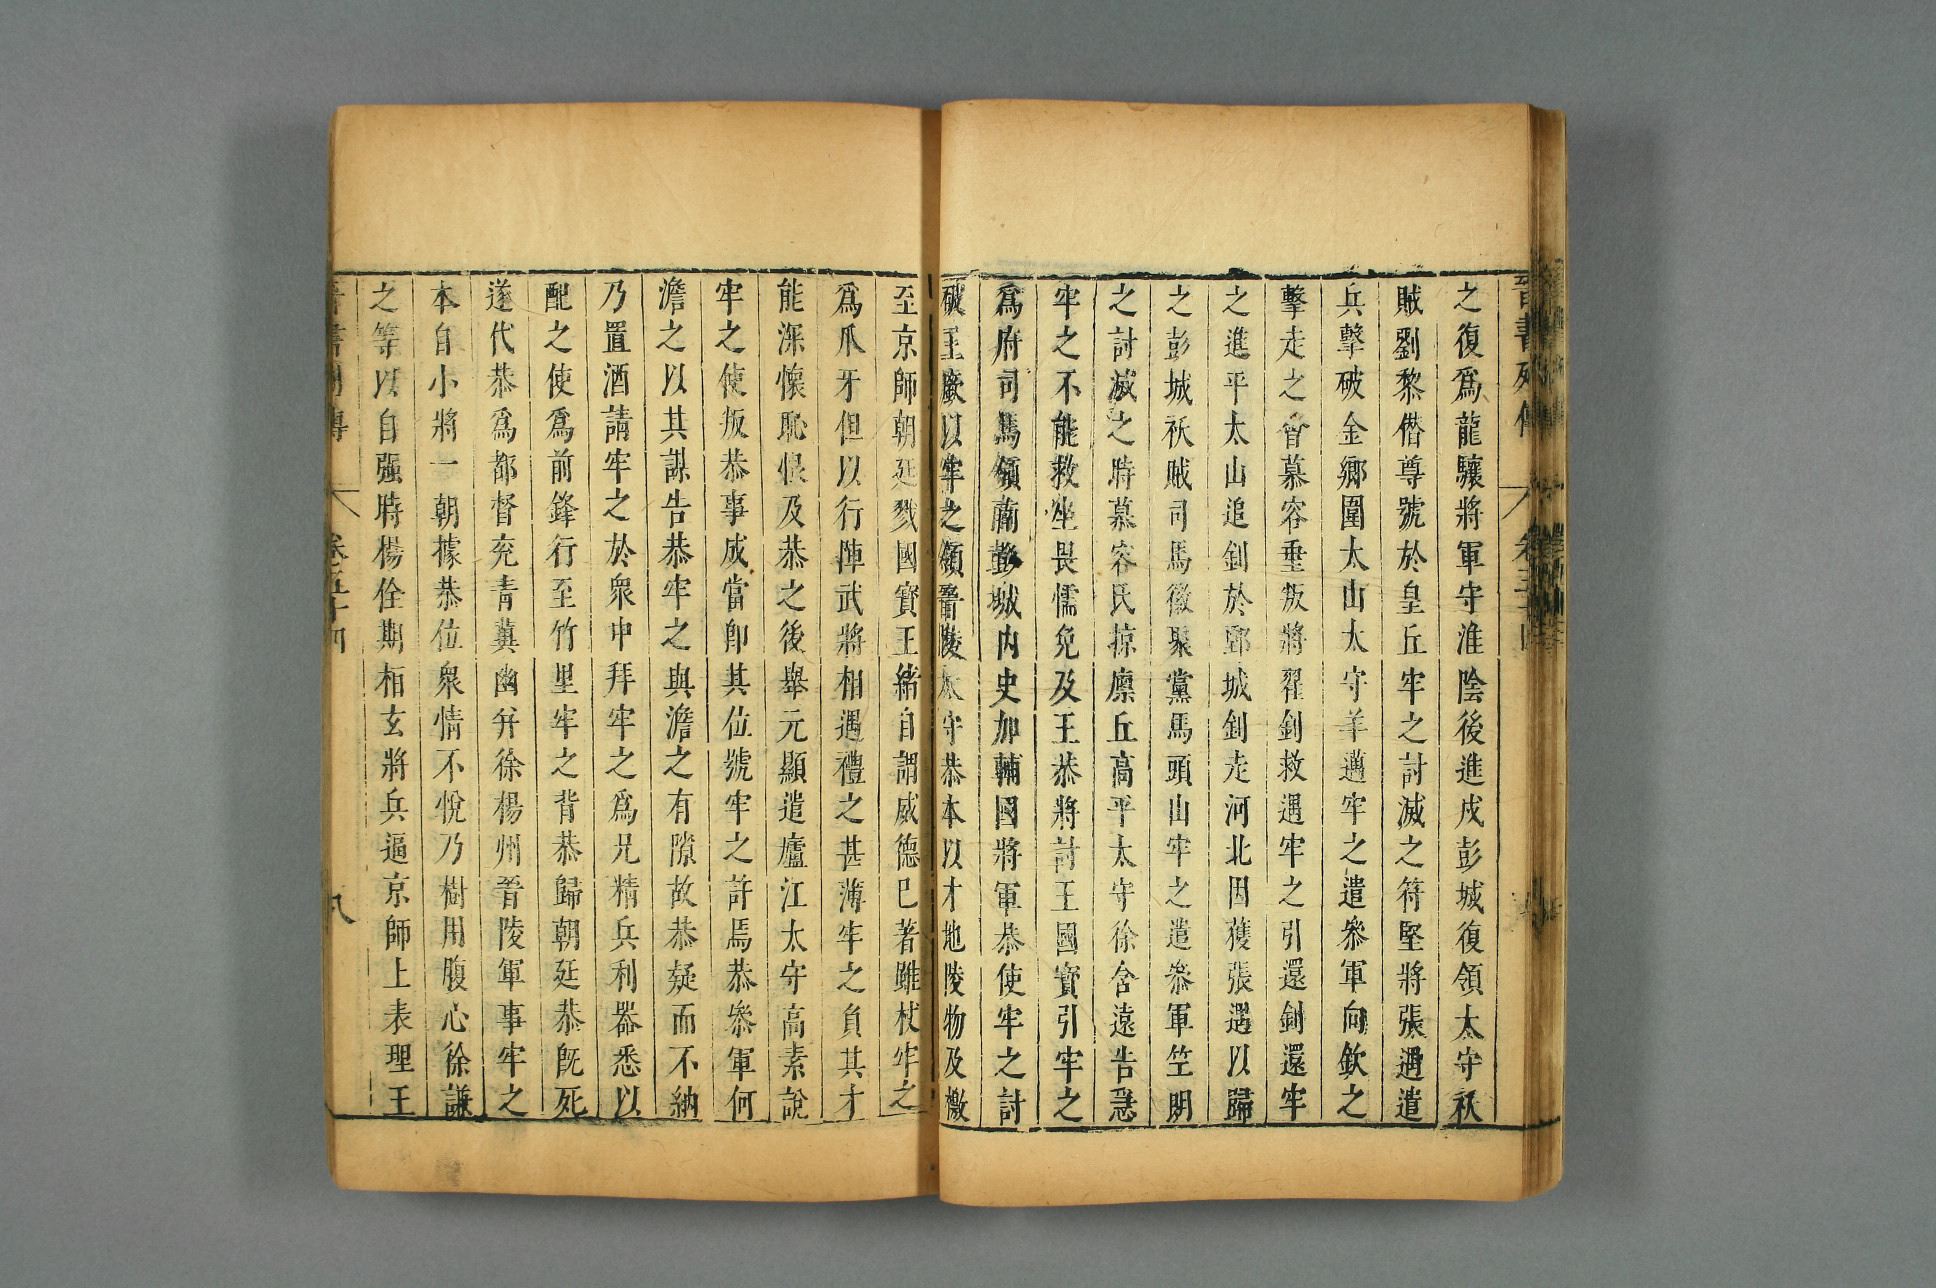 晉書列傳 卷五十四
之復爲龍驤將軍守淮陰後進戍彭城復領太守祅
賊劉黎僭尊號於皇丘牢之討滅之符堅將張遇遣
兵擊破金鄉圍太山太守羊邁牢之遣叅軍向欽之
擊走之會慕容垂叛將翟釗救遇牢之引還釗還牢
之進平太山追釗於鄄城釗走河北因獲張遇以歸
之彭城祅賊司馬徽聚黨馬頭山牢之遣叅軍竺朗
之討滅之時慕容氏掠廪丘高平太守徐含遠告急
牢之不能救坐畏懦免及王恭將討王國寶引牢之
爲府司馬領南彭城內史加輔國將軍恭使牢之討
破王廞以牢之領晉陵太守恭本以才地陵物及檄
至京師朝廷戮國寶王緒自謂威德已著雖杖牢之
爲爪牙但以行陣武將相遇禮之甚薄牢之負其才
能深懷恥恨及恭之後舉元顯遣廬江太守高素說
牢之使叛恭事成當卽其位號牢之許焉恭叅軍何
澹之以其謀告恭牢之與澹之有隙故恭疑而不納
乃置酒請牢之於衆中拜牢之爲兄精兵利器悉以
配之使爲前鋒行至竹里牢之背恭歸朝廷恭旣死
遂代恭爲都督兖青冀幽幷徐楊州晉陵軍事牢之
本自小將一朝據恭位衆情不悅乃樹用腹心徐謙
之等以自强時楊佺期相玄將兵逼京師上表理王
晉書列傳 卷五十四 八